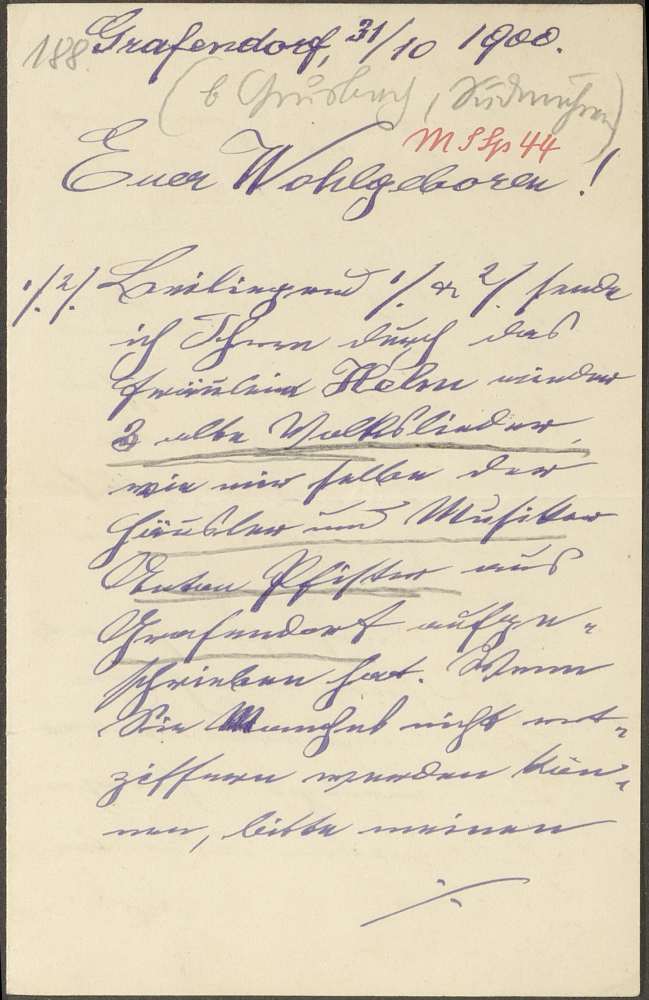 188.
Grafendorf, 31/10 1900.
(b Grusbach, Südmähren)
M S Sp 44
Euer Wohlgeboren!
1/. 2/. Beiliegend 1/. & 2/. sende
ich Ihnen durch das
Fräulein Helm wieder
3 alte Volkslieder,
wie mir selbe der
Häusler und Musiker
Anton Pfister aus
Grafendorf aufge-
schrieben hat. Wenn
Sie Manches nicht ent-
ziffern werden kön-
nen, bitte meinen
./.